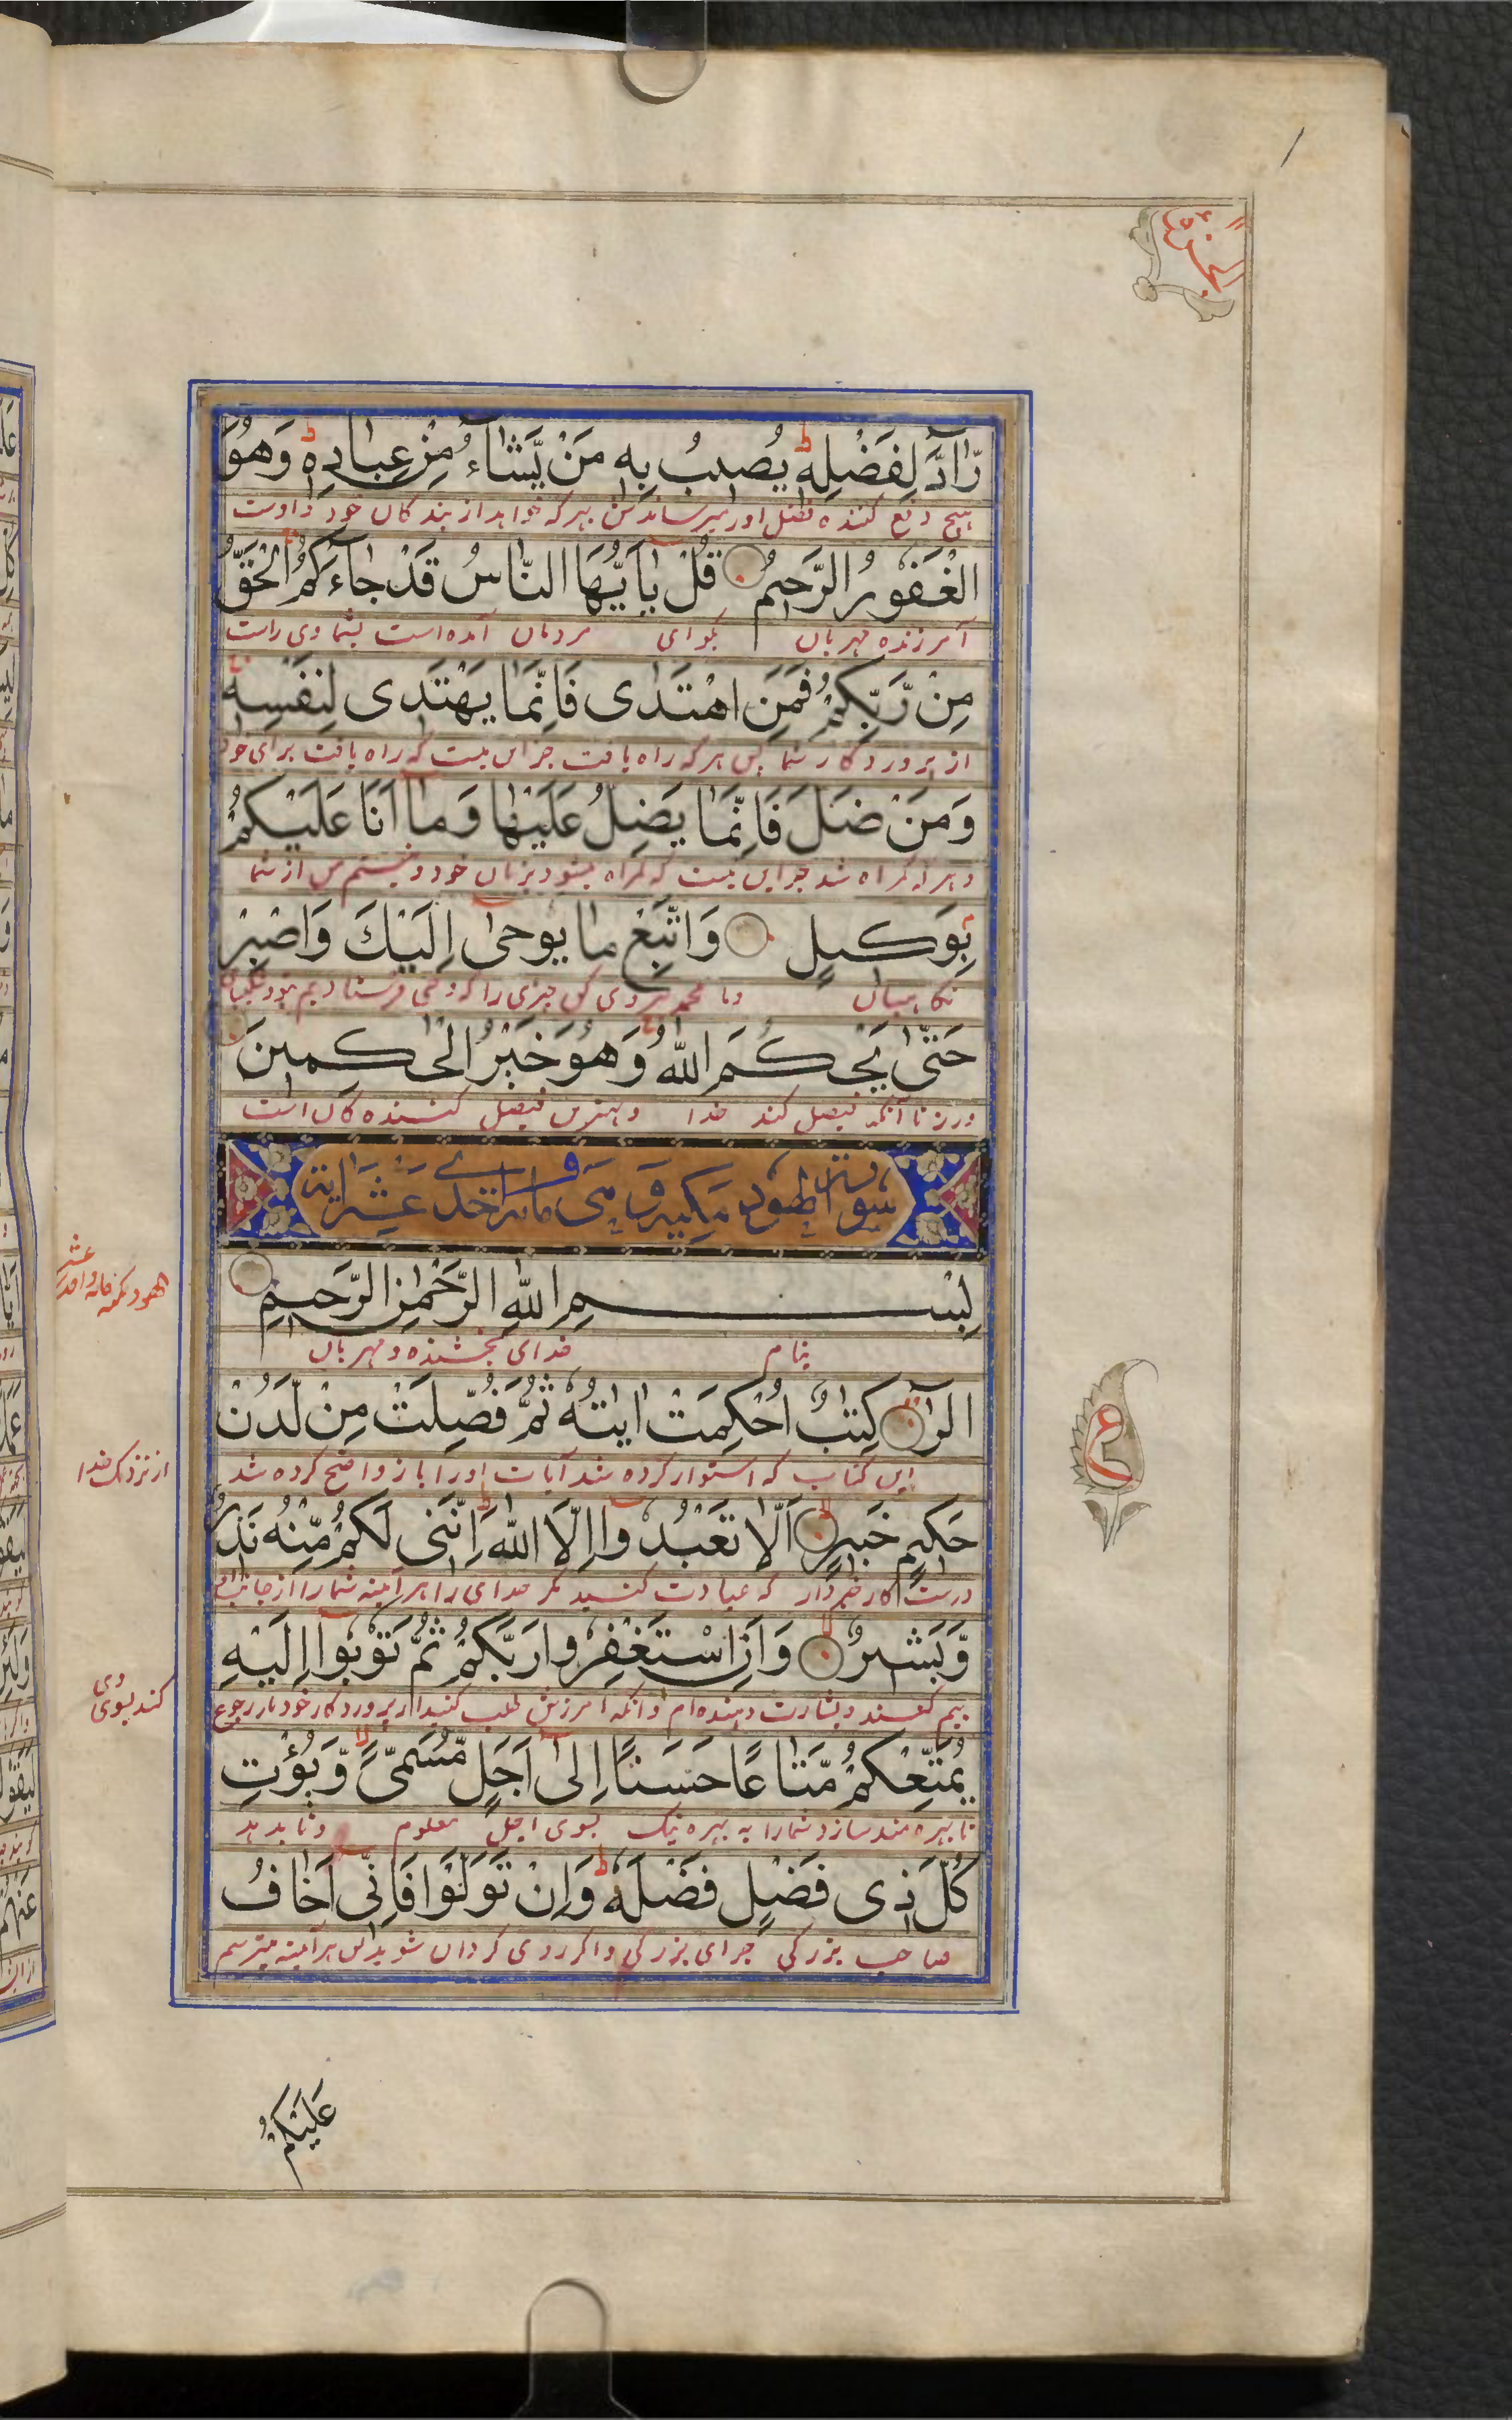 رَآدَّ لِفَضْلِهٖ ط يُصِيبُ بِهٖ مَنْ يَّشَآءُ مِنْ عِبَادِهٖ ط وَهُوَ
هیچ دفع کننده فضل اورا میرساندش بهر که خواهد از بندگان خود و اوست
الْغَفُورُ الرَّحِيمُ قُلْ يٰٓاَيُّهَا النَّاسُ قَدْ جَآءَكُمُ الْحَقُّ
آمرزنده مهربان بگو ای مردمان آمده است بشما وی راست
مِنْ رَّبِّكُمْ فَمَنِ اهْتَدٰى فَاِنَّمَا يَهْتَدِى لِنَفْسِهٖ
از پروردگار شما پس هرکه راه یافت جز این نیست که راه یافت برای خود
وَمَنْ ضَلَّ فَاِنَّمَا يَضِلُّ عَلَيْهَا وَمَآ اَنَا عَلَيْكُمْ
و هرکه گمراه شد جز این نیست که گمراه میشود بزیان خود و نیستم من از شما
بِوَكِيلٍ وَاتَّبِعْ مَا يُوحٰٓى اِلَيْكَ وَاصْبِرْ
نگاهبان و یا محمد پیروی کن چیزی را که وحی فرستادیم بتو
حَتّٰى يَحْكُمَ اللّٰهُ وَهُوَ خَيْرُ الْحٰكِمِينَ
ورز تا آنکه فیصل کند خدا و بهترین فیصل کننده گان است
سورة الهود مكية وهى مائة احدى عشر اية
بِسْمِ اللّٰهِ الرَّحْمٰنِ الرَّحِيمِ
بنام خدای بخشنده و مهربان
الٓرٰ كِتٰبٌ اُحْكِمَتْ اٰيٰتُهٗ ثُمَّ فُصِّلَتْ مِنْ لَّدُنْ
این کتاب که استوار کرده شد آیات اورا باز واضح کرده شد
از نزدیک خدا
حَكِيمٍ خَبِيرٍ اَلَّا تَعْبُدُوٓا اِلَّا اللّٰهَ ط اِنَّنِى لَكُمْ مِّنْهُ نَذِيرٌ
درست کار خبردار که عبادت کنید مگر خدای را هر آینه شما را از جانب
وَّبَشِيرٌ وَاَنِ اسْتَغْفِرُوا رَبَّكُمْ ثُمَّ تُوبُوٓا اِلَيْهِ
بیم کننده و بشارت دهنده ام و آنکه آمرزش طلب کنید از پروردگار خود باز رجوع
کنند بسوی وی
يُمَتِّعْكُمْ مَّتَاعًا حَسَنًا اِلٰٓى اَجَلٍ مُّسَمًّى وَّيُؤْتِ
تا بهره مند سازد شما را به بهره نیک بسوی اجل معلوم و تا بدهد
كُلَّ ذِى فَضْلٍ فَضْلَهٗ ط وَاِنْ تَوَلَّوْا فَاِنِّىٓ اَخَافُ
صاحب بزرگی جزای بزرگی و اگر روی گردان شوید پس هر آینه میترسم
عَلَيْكُمْ
ع